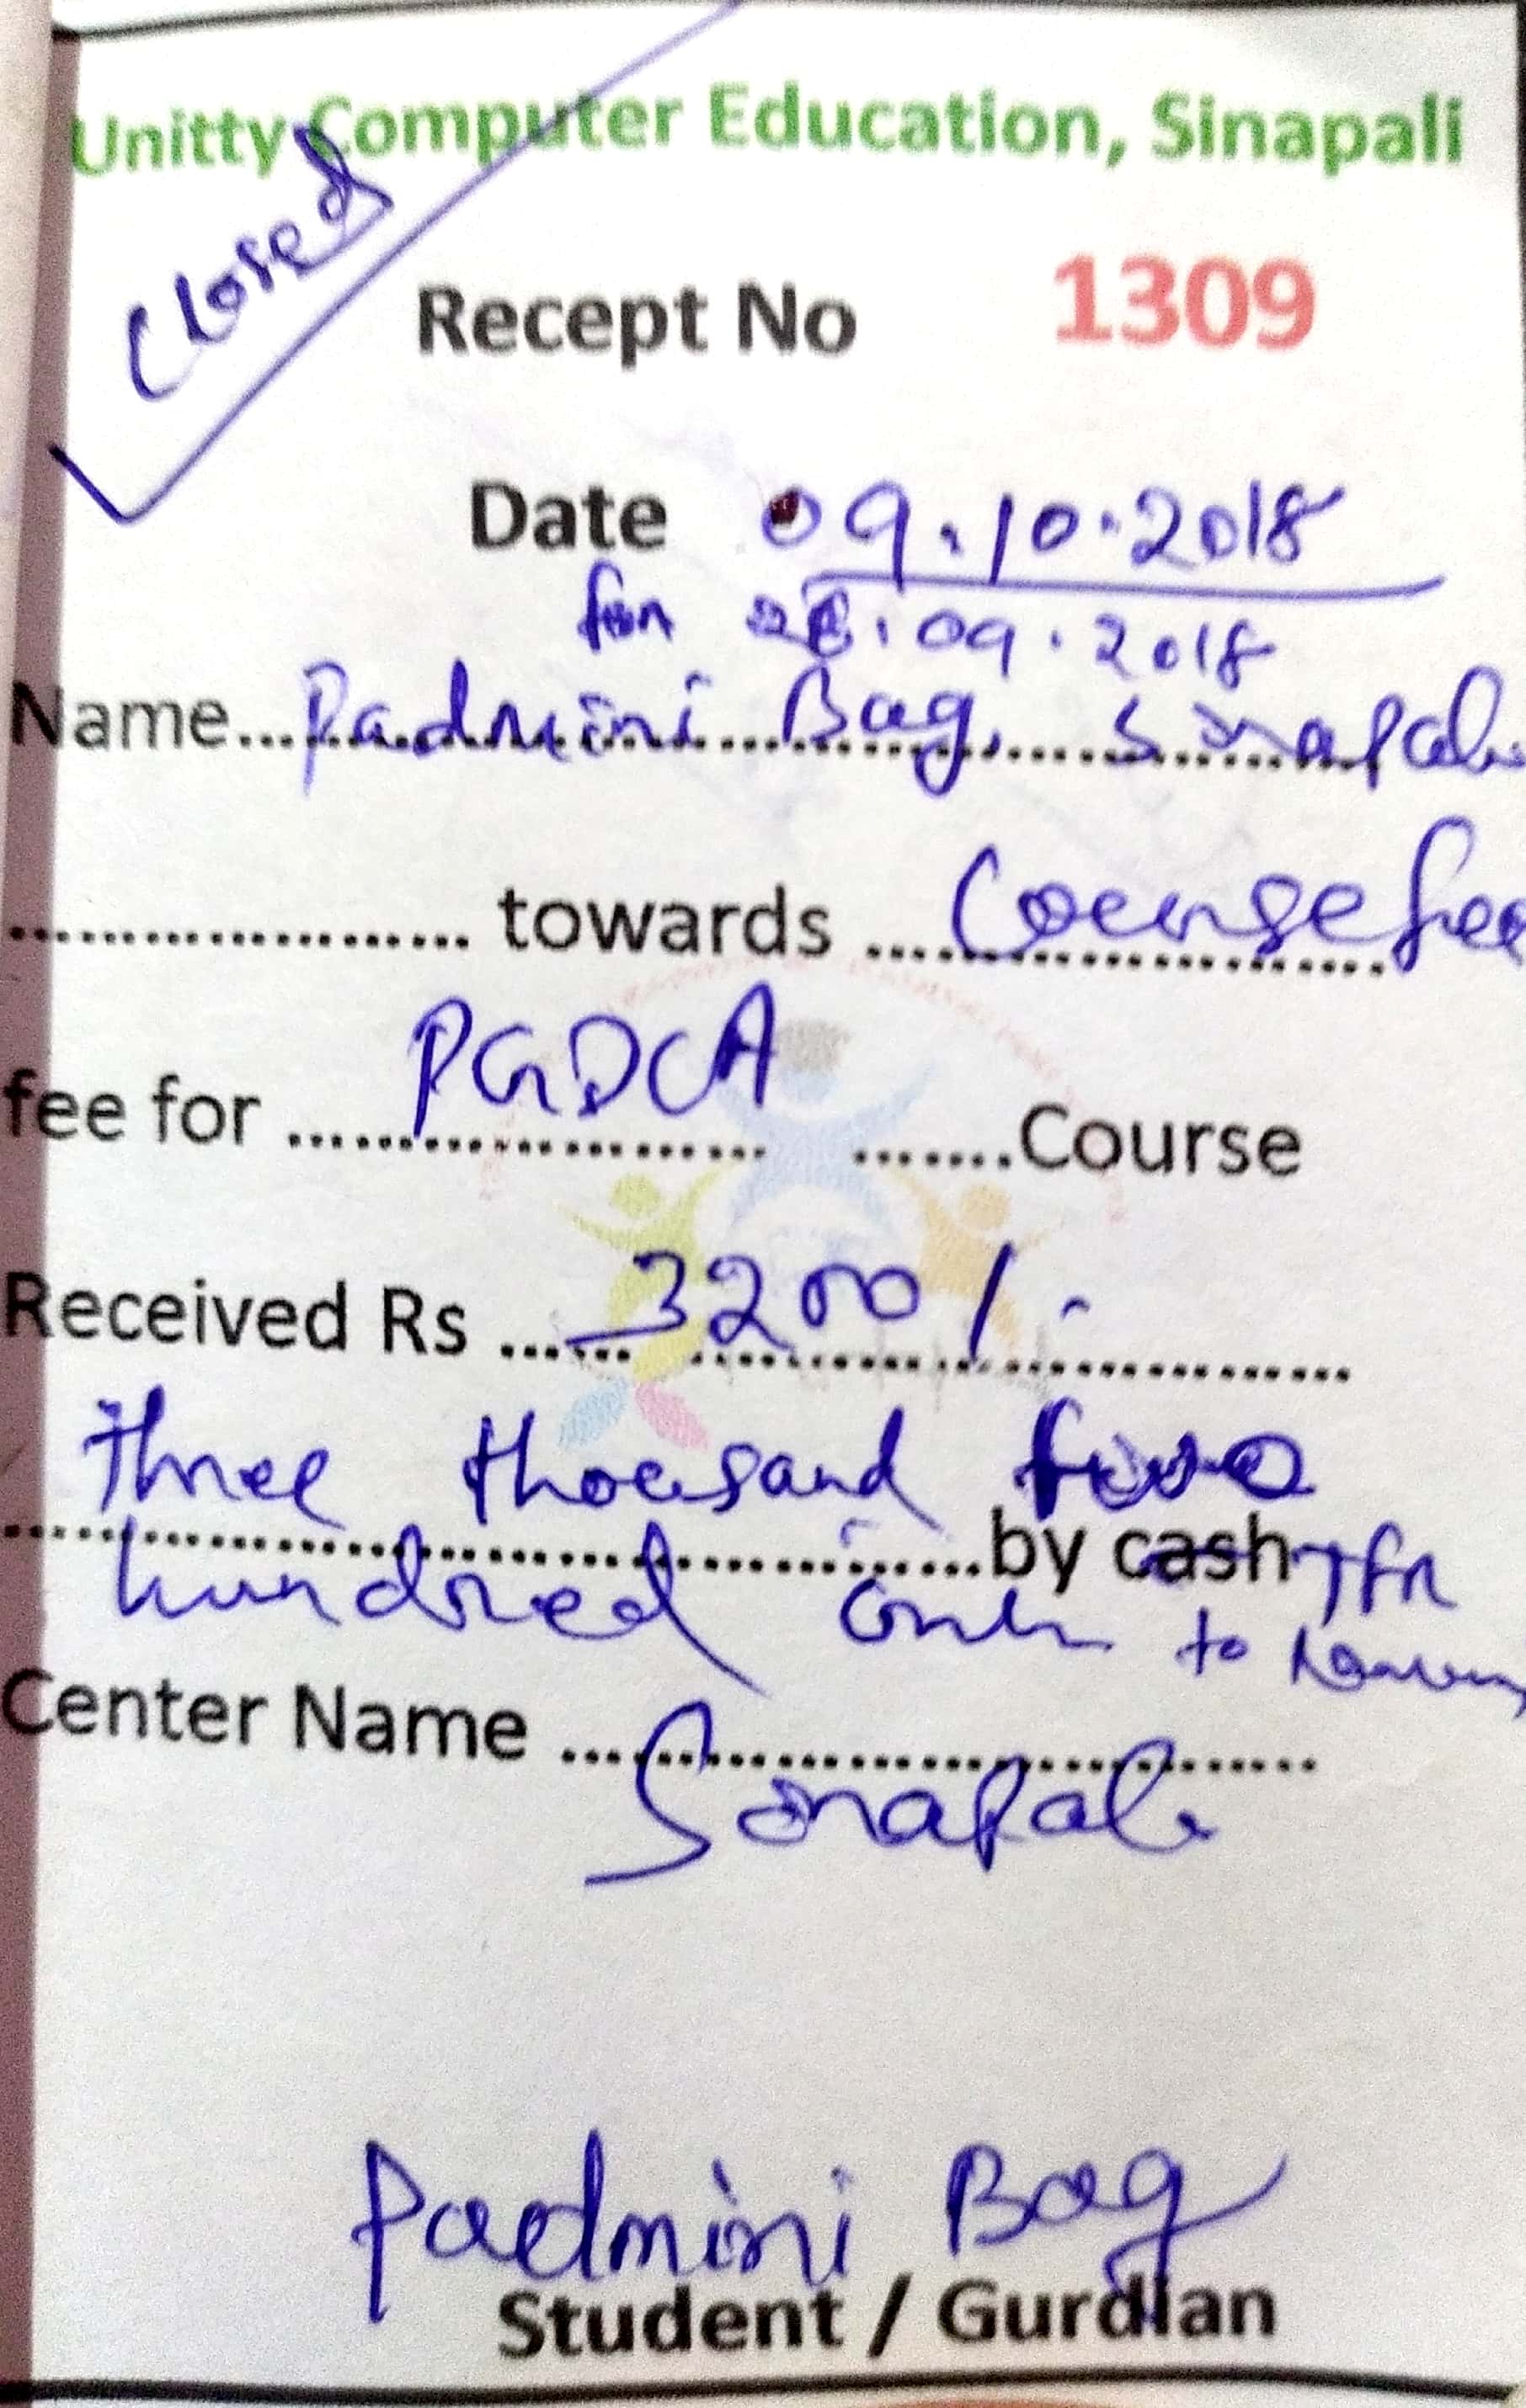 Unitty Computer Education, Sinapali
Closed
Recept No 1309
Date 09.10.2018
for 09.2018
Name... Padmini Bag, Sinapali
.................... towards .... Course fee
fee for ... PGDCA .......Course
Received Rs ... 3200/-
Three thousand two
....................by cash TFR
hundred only to
Center Name ....................
Sinapali
Padmini Bag
Student / Gurdian